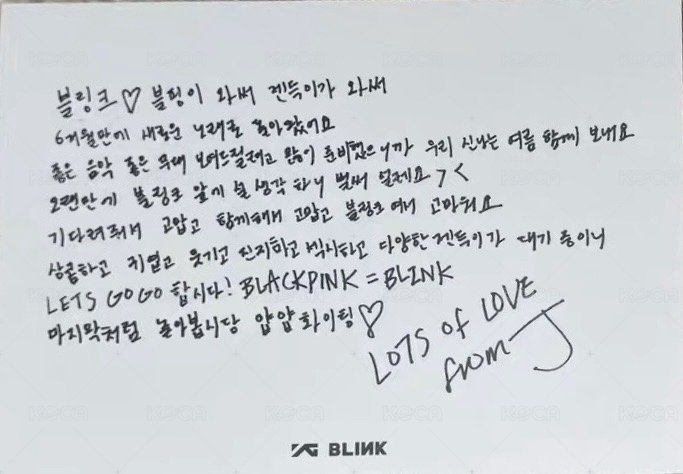 블링크♡ 블핑이 와써 젠득이가 와써
6개월만에 새로운 노래로 돌아왔어요
좋은 음악 좋은 무대 보여드릴려고 많이 준비했으니까 우리 신나는 여름 함께 보내요
오랜만에 블링크 앞에 설 생각 하니 벌써 떨려요 > <
기다려줘서 고맙고 함께해서 고맙고 블링크 여서 고마워요
상큼하고 귀엽고 웃기고 진지하고 섹시하고 다양한 젠득이가 대기 중이니
LETS GO GO 합시다! BLACKPINK = BLINK
마지막처럼 놀아봅시당 얍얍 화이팅♡
LOTS of LOVE
from J
YG BLINK
KOCA